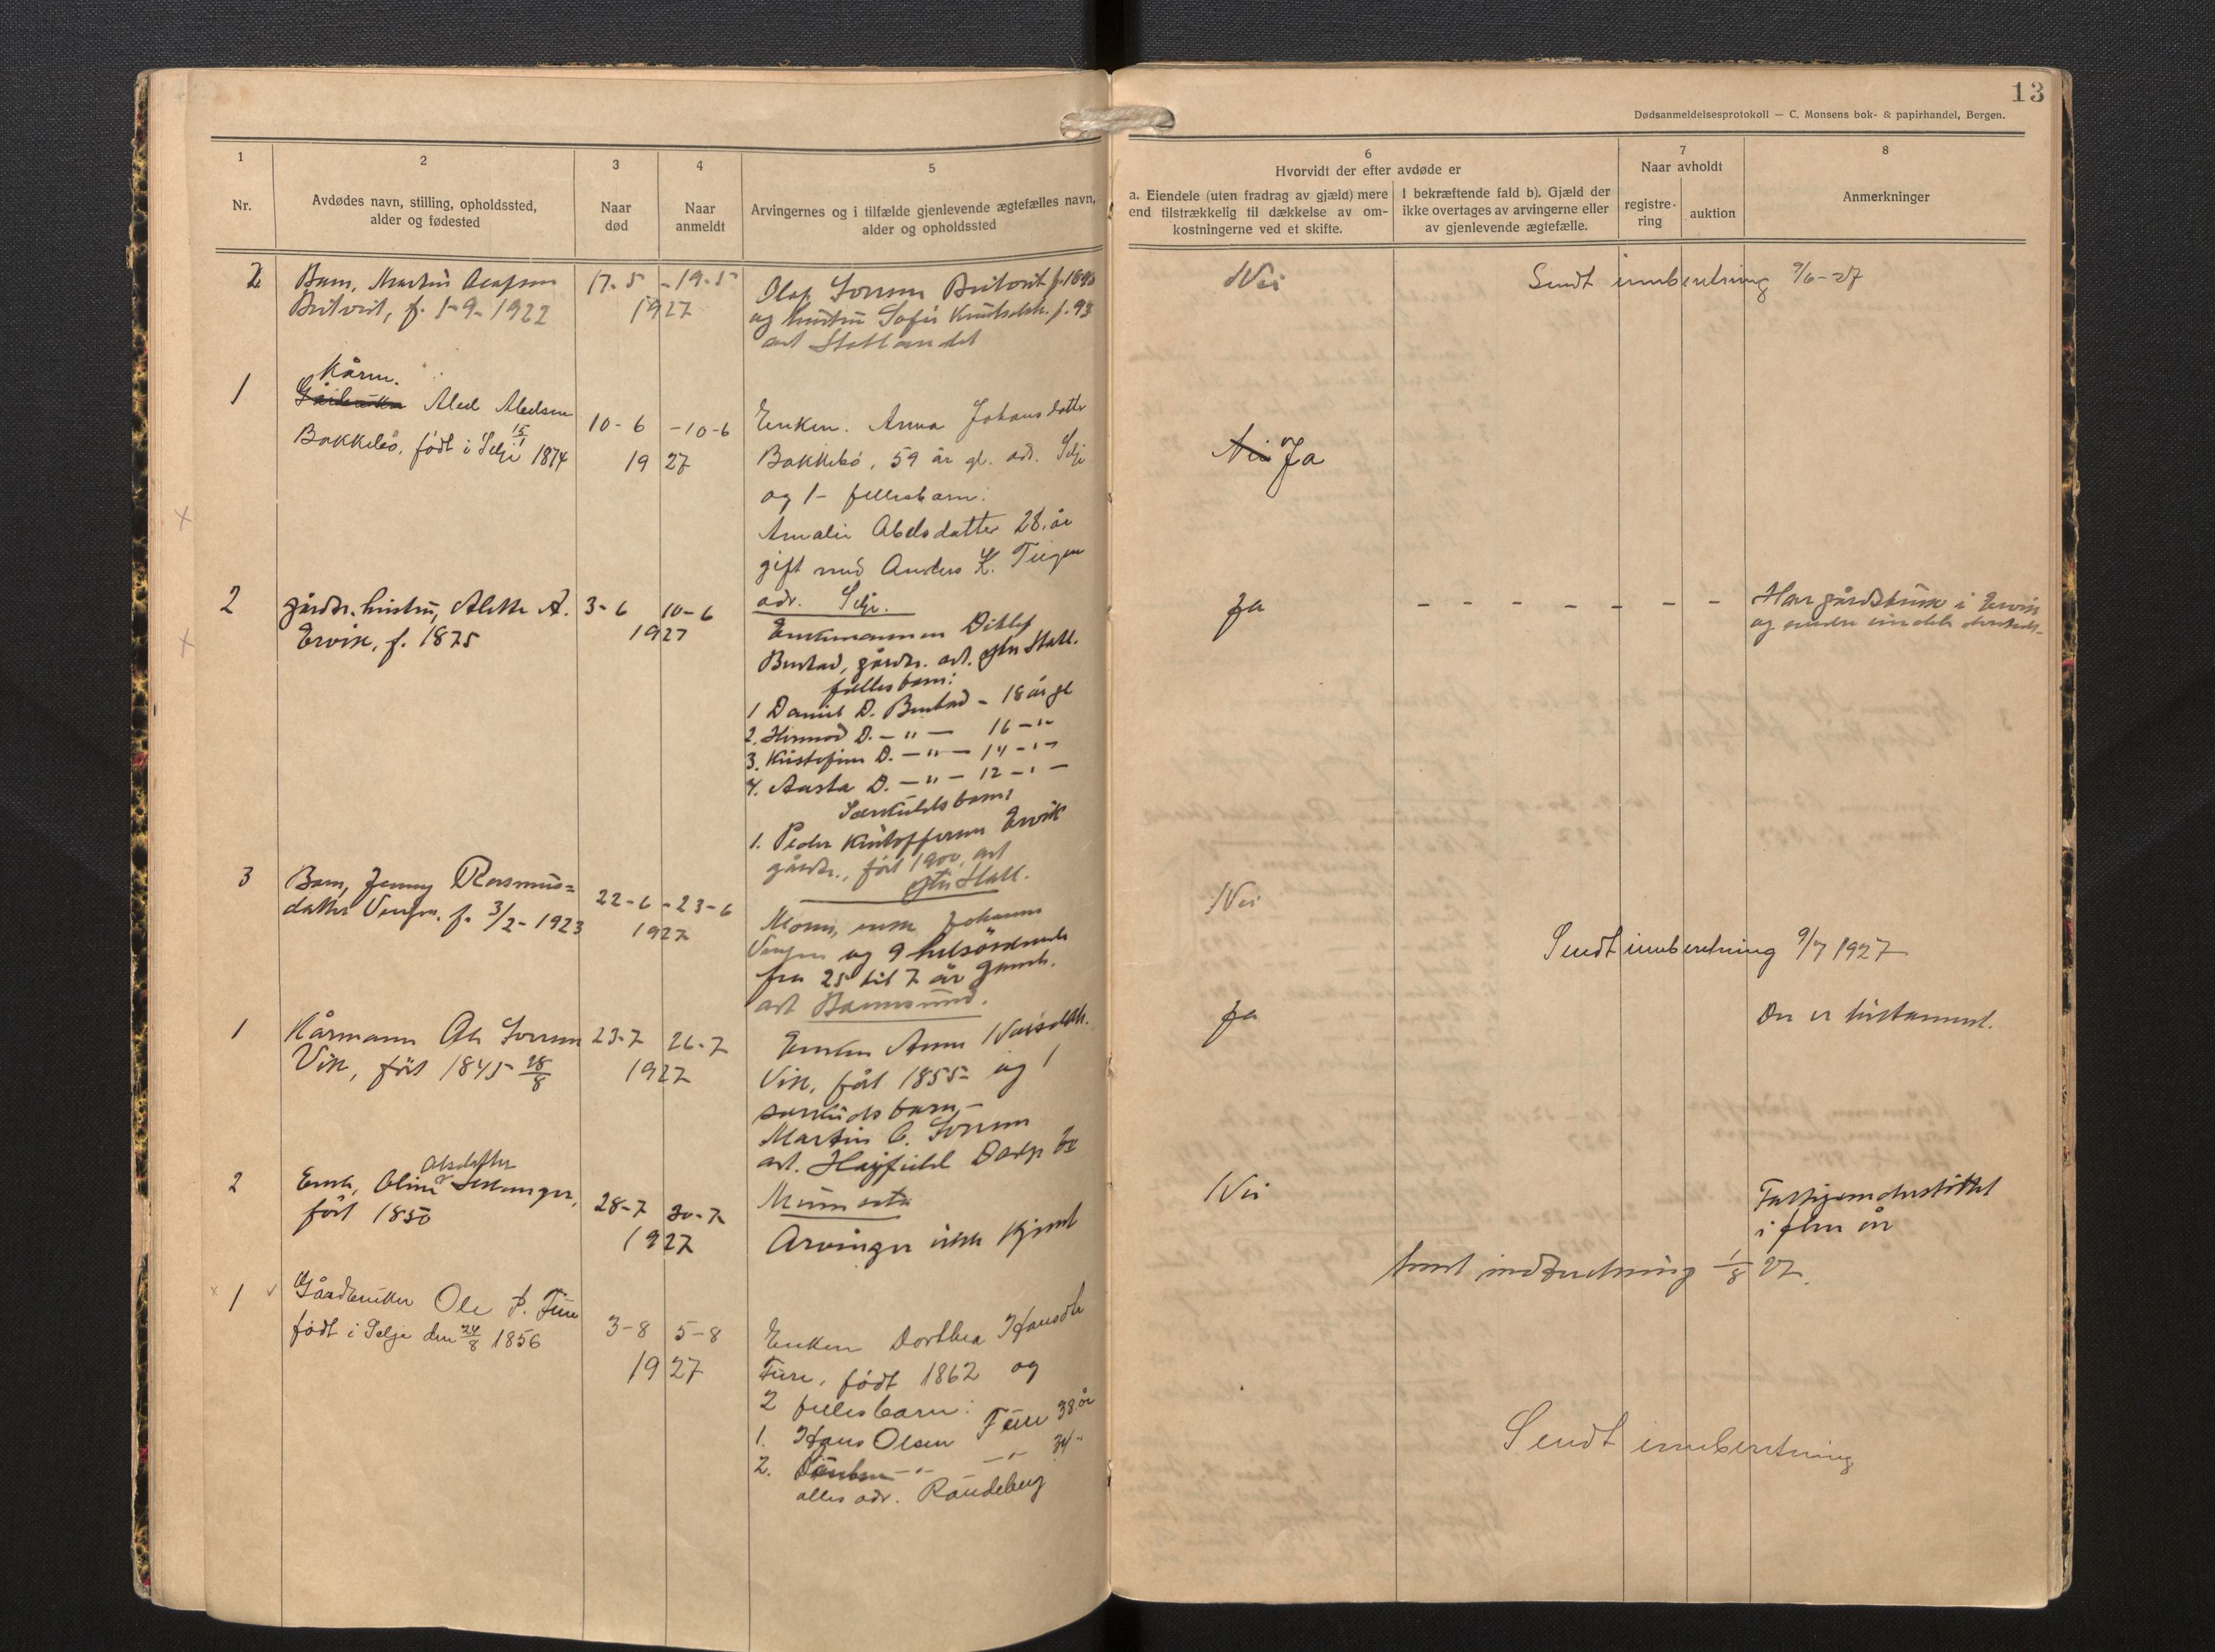 13
Dødsanmeldelsesprotokoll — C. Monsens bok- & papirhandel, Bergen.
1
Nr.
2
Avdødes navn, stilling, opholdssted,
alder og fødested
3
Naar
død
4
Naar
anmeldt
5
Arvingernes og i tilfælde gjenlevende ægtefælles navn,
alder og opholdssted
6
Hvorvidt der efter avdøde er
a. Eiendele (uten fradrag av gjæld) mere
end tilstrækkelig til dækkelse av om-
kostningerne ved et skifte.
I bekræftende fald b). Gjæld der
ikke overtages av arvingerne eller
av gjenlevende ægtefælle.
7
Naar avholdt
registre-
ring
auktion
8
Anmerkninger
2
Barn, Martin Olafson
f. 1-9-1922
17-5 - 19-5
1927
Olaf
og hustru Sofie f. 93
adr Statlandet
Nei
Sendt innberetning 9/6-27
1
Kårm.
Gårdbruker Abel Abelsen
Bakkebø, født i Selje 15/1 1874
10-6 - 10-6
1927
Enken. Anna Johansdatter
Bakkebø, 59 år gl. adr. Selje
og 1 - fellesbarn:
Amalie Abelsdatter 28 år
gift med Anders K. Teigen
adr. Selje.
Nei Ja
2
gårdbr. hustru, Alette A.
Ervik, f. 1875
3-6 10-6
1927
Enkemannen Ditlef
Burtad, gårdbr. adr. ytre Statl.
fellesbarn:
1 Daniel D. Burtad - 18 år gl
2. D. — " — 16 - " -
3. D. — " — 14 - " -
4. Aasta D. — " — 12 - " -
Særkuldsbarn:
1. Peder Kristoffersen Ervik
gårdbr., født 1900, adr
ytre Statl.
Ja
- - - - - - -
Har gårdsbruk i Ervik
og
3
Barn, Jenny Rasmus=
datter f. 3/2-1923
22-6 - 23-6
1927
Moren, enke Johanna
og 9 helsøskende
fra 25 til 7 år gamle.
adr Barmsund.
Nei
Sendt innberetning 9/7 1927
1
Kårmann Ole
Vik, født 1845 28/8
23-7 26-7
1927
Enken Anne
Vik, født 1855 og 1
særkuldsbarn -
Martin O.
adr. Hayfield
Minnesota
Ja
Der er testament.
2
Olsdatter
Enke, Oline
født 1850
28-7 30-7
1927
Arvinger ikke kjent
Nei
Fattigunderstøttet
i flere år
Sendt indberetning 1/8 27.
1
Gårdbruker Ole P. Fure
født i Selje den 24/8 1856
3-8 5-8
1927
Enken Dorthea Hansdtr
Fure, født 1862 og
2 fellesbarn:
1. Hans Olsen Fure 38 år
2. - " - - " - 34 "
alles adr. Raudeberg
Sendt innberetning